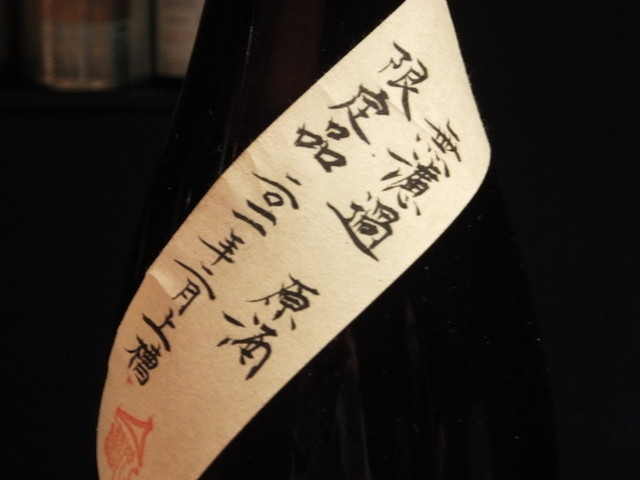 無濾過 原酒
限定品
二〇一一年二月上槽